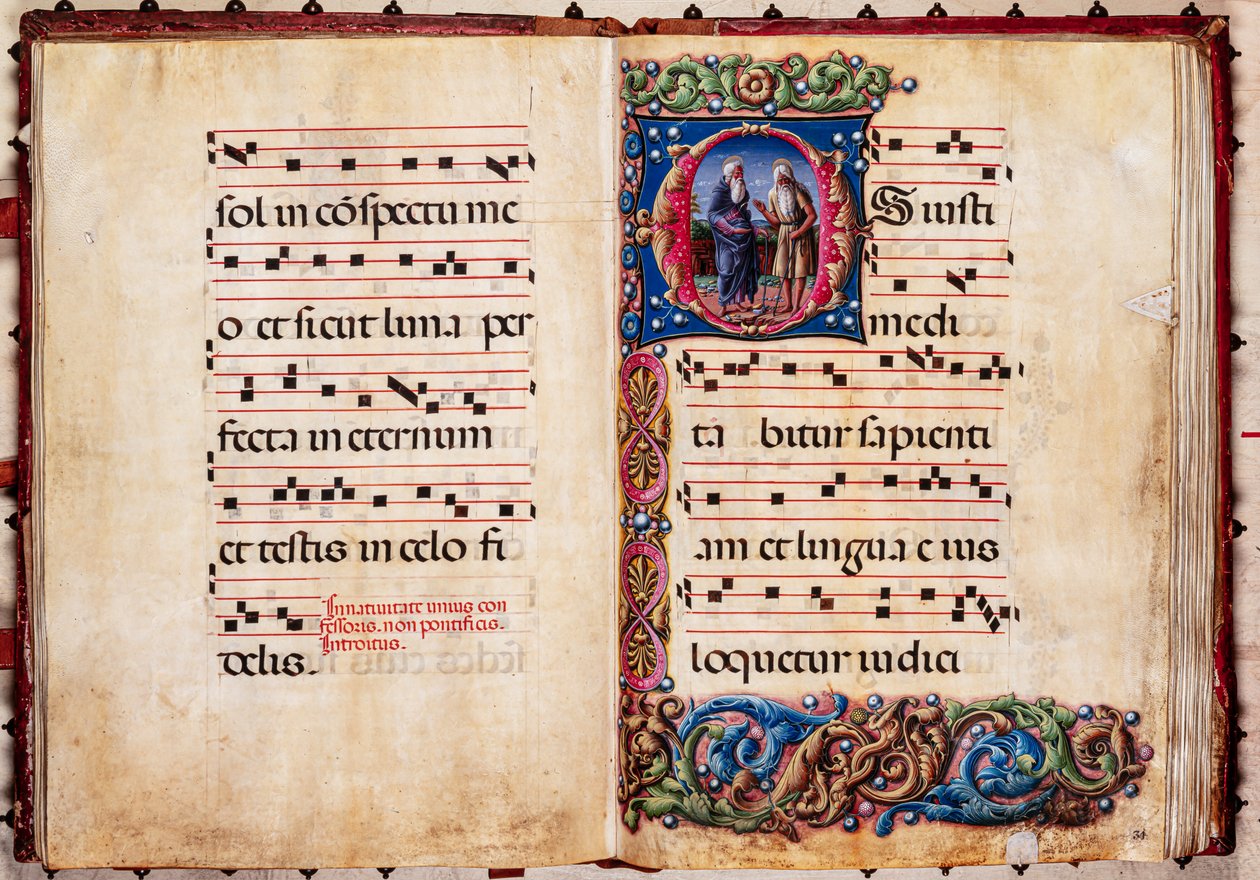 sol in cõspectu me
o et sicut luna per
fecta in eternum
et testis in celo fi
delis.
In natiuitate unius con
fessoris. non pontificis.
Introitus.
OS iusti
medi
tabitur sapienti
am et lingua eius
loquetur iudici
34